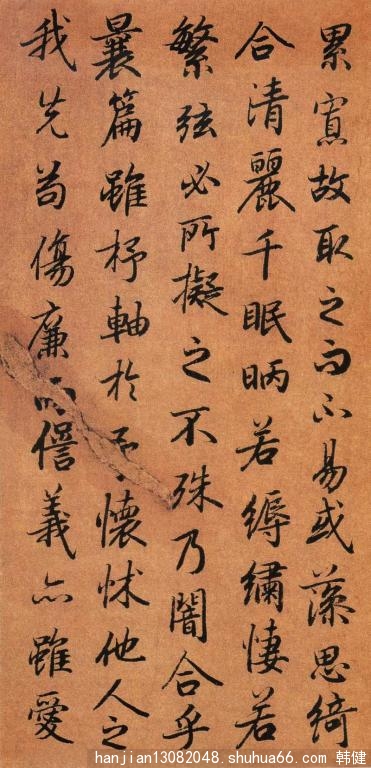 累寡故取之而不易或藻思綺
合清麗千眠昞若縟繡悽若
繁弦必所擬之不殊乃闇合乎
曩篇雖杼軸於予懷怵他人之
我先苟傷廉而諐義亦雖愛
hanjian13082048.shuhua66.com 韩健